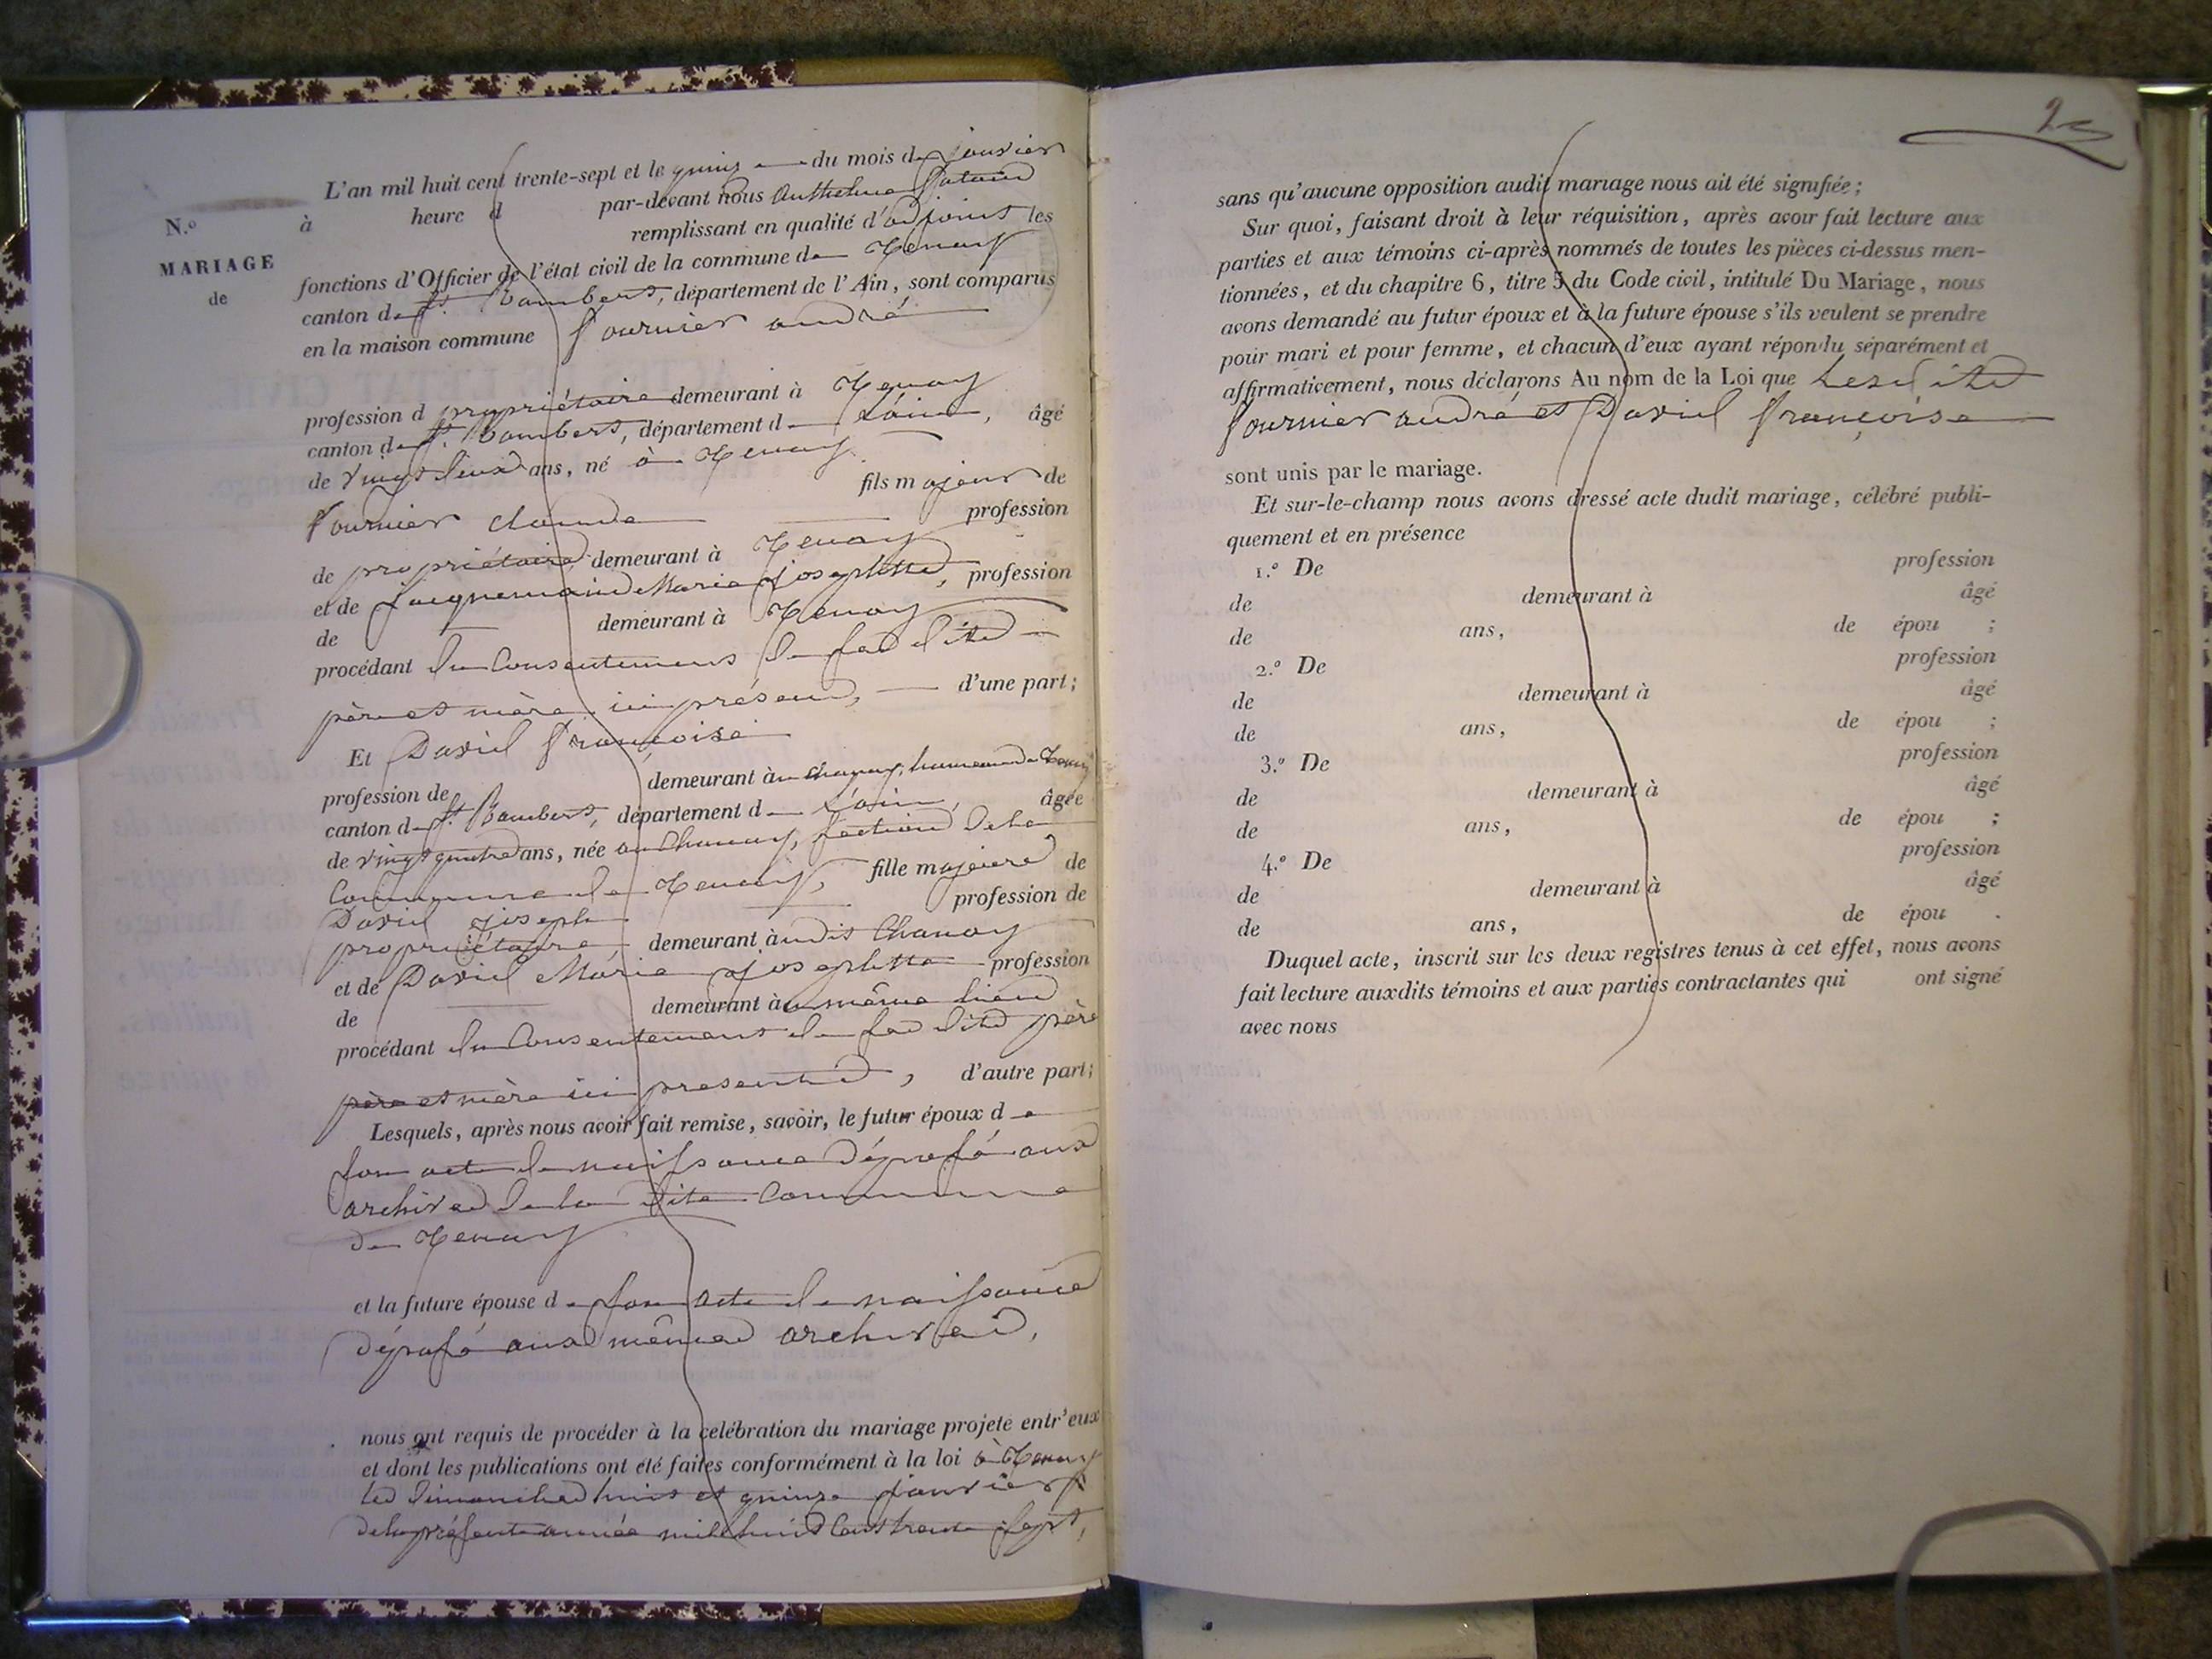 N.o
MARIAGE
de
L'an mil huit cent trente-sept et le quinz du mois de janvier
à heure d par-devant nous Anthelme
remplissant en qualité d'adjoint les
fonctions d'Officier de l'état civil de la commune de Tenay
canton de St. Rambert, département de l'Ain, sont comparus
en la maison commune Fournier andré
profession d propriétaire demeurant à Tenay
canton de St. Rambert, département de L'ain, âgé
de vingt deux ans, né à Tenay
fils majeur de
Fournier claude profession
de propriétaire demeurant à Tenay
et de Jacquemain Marie josephte, profession
de demeurant à Tenay
procédant du Consentement de ses dits
père et mère ici présens, d'une part;
Et David françoise
profession de demeurant à au chanay, hameau de Tenay
canton de St. Rambert, département de L'ain, âgée
de vingt quatre ans, née au Chanay, section de la
Commune de Tenay, fille majeure de
David joseph profession de
propriétaire, demeurant à udit Chanay
et de David Marie josephte profession
de demeurant à au même lieu
procédant du Consentement de ses dits père
père et mère ici présents, d'autre part;
Lesquels, après nous avoir fait remise, savoir, le futur époux de
son acte de naissance déposé aux
archives de la dite Commune
de Tenay
et la future épouse de son acte de naissance
déposé aux mêmes archives,
nous ont requis de procéder à la célébration du mariage projeté entr'eux
et dont les publications ont été faites conformément à la loi à Tenay
les dimanches huit et quinze janvier
de la présente année mil huit Cent trente sept,
2
sans qu'aucune opposition audit mariage nous ait été signifiée;
Sur quoi, faisant droit à leur réquisition, après avoir fait lecture aux
parties et aux témoins ci-après nommés de toutes les pièces ci-dessus men-
tionnées, et du chapitre 6, titre 5 du Code civil, intitulé Du Mariage, nous
avons demandé au futur époux et à la future épouse s'ils veulent se prendre
pour mari et pour femme, et chacun d'eux ayant répondu séparément et
affirmativement, nous déclarons Au nom de la Loi que Lesdits
Fournier andré et David françoise
sont unis par le mariage.
Et sur-le-champ nous avons dressé acte dudit mariage, célébré publi-
quement et en présence
1.o De profession
de demeurant à âgé
de ans, de épou ;
2.o De profession
de demeurant à âgé
de ans, de épou ;
3.o De profession
de demeurant à âgé
de ans, de épou ;
4.o De profession
de demeurant à âgé
de ans, de épou .
Duquel acte, inscrit sur les deux registres tenus à cet effet, nous avons
fait lecture auxdits témoins et aux parties contractantes qui ont signé
avec nous